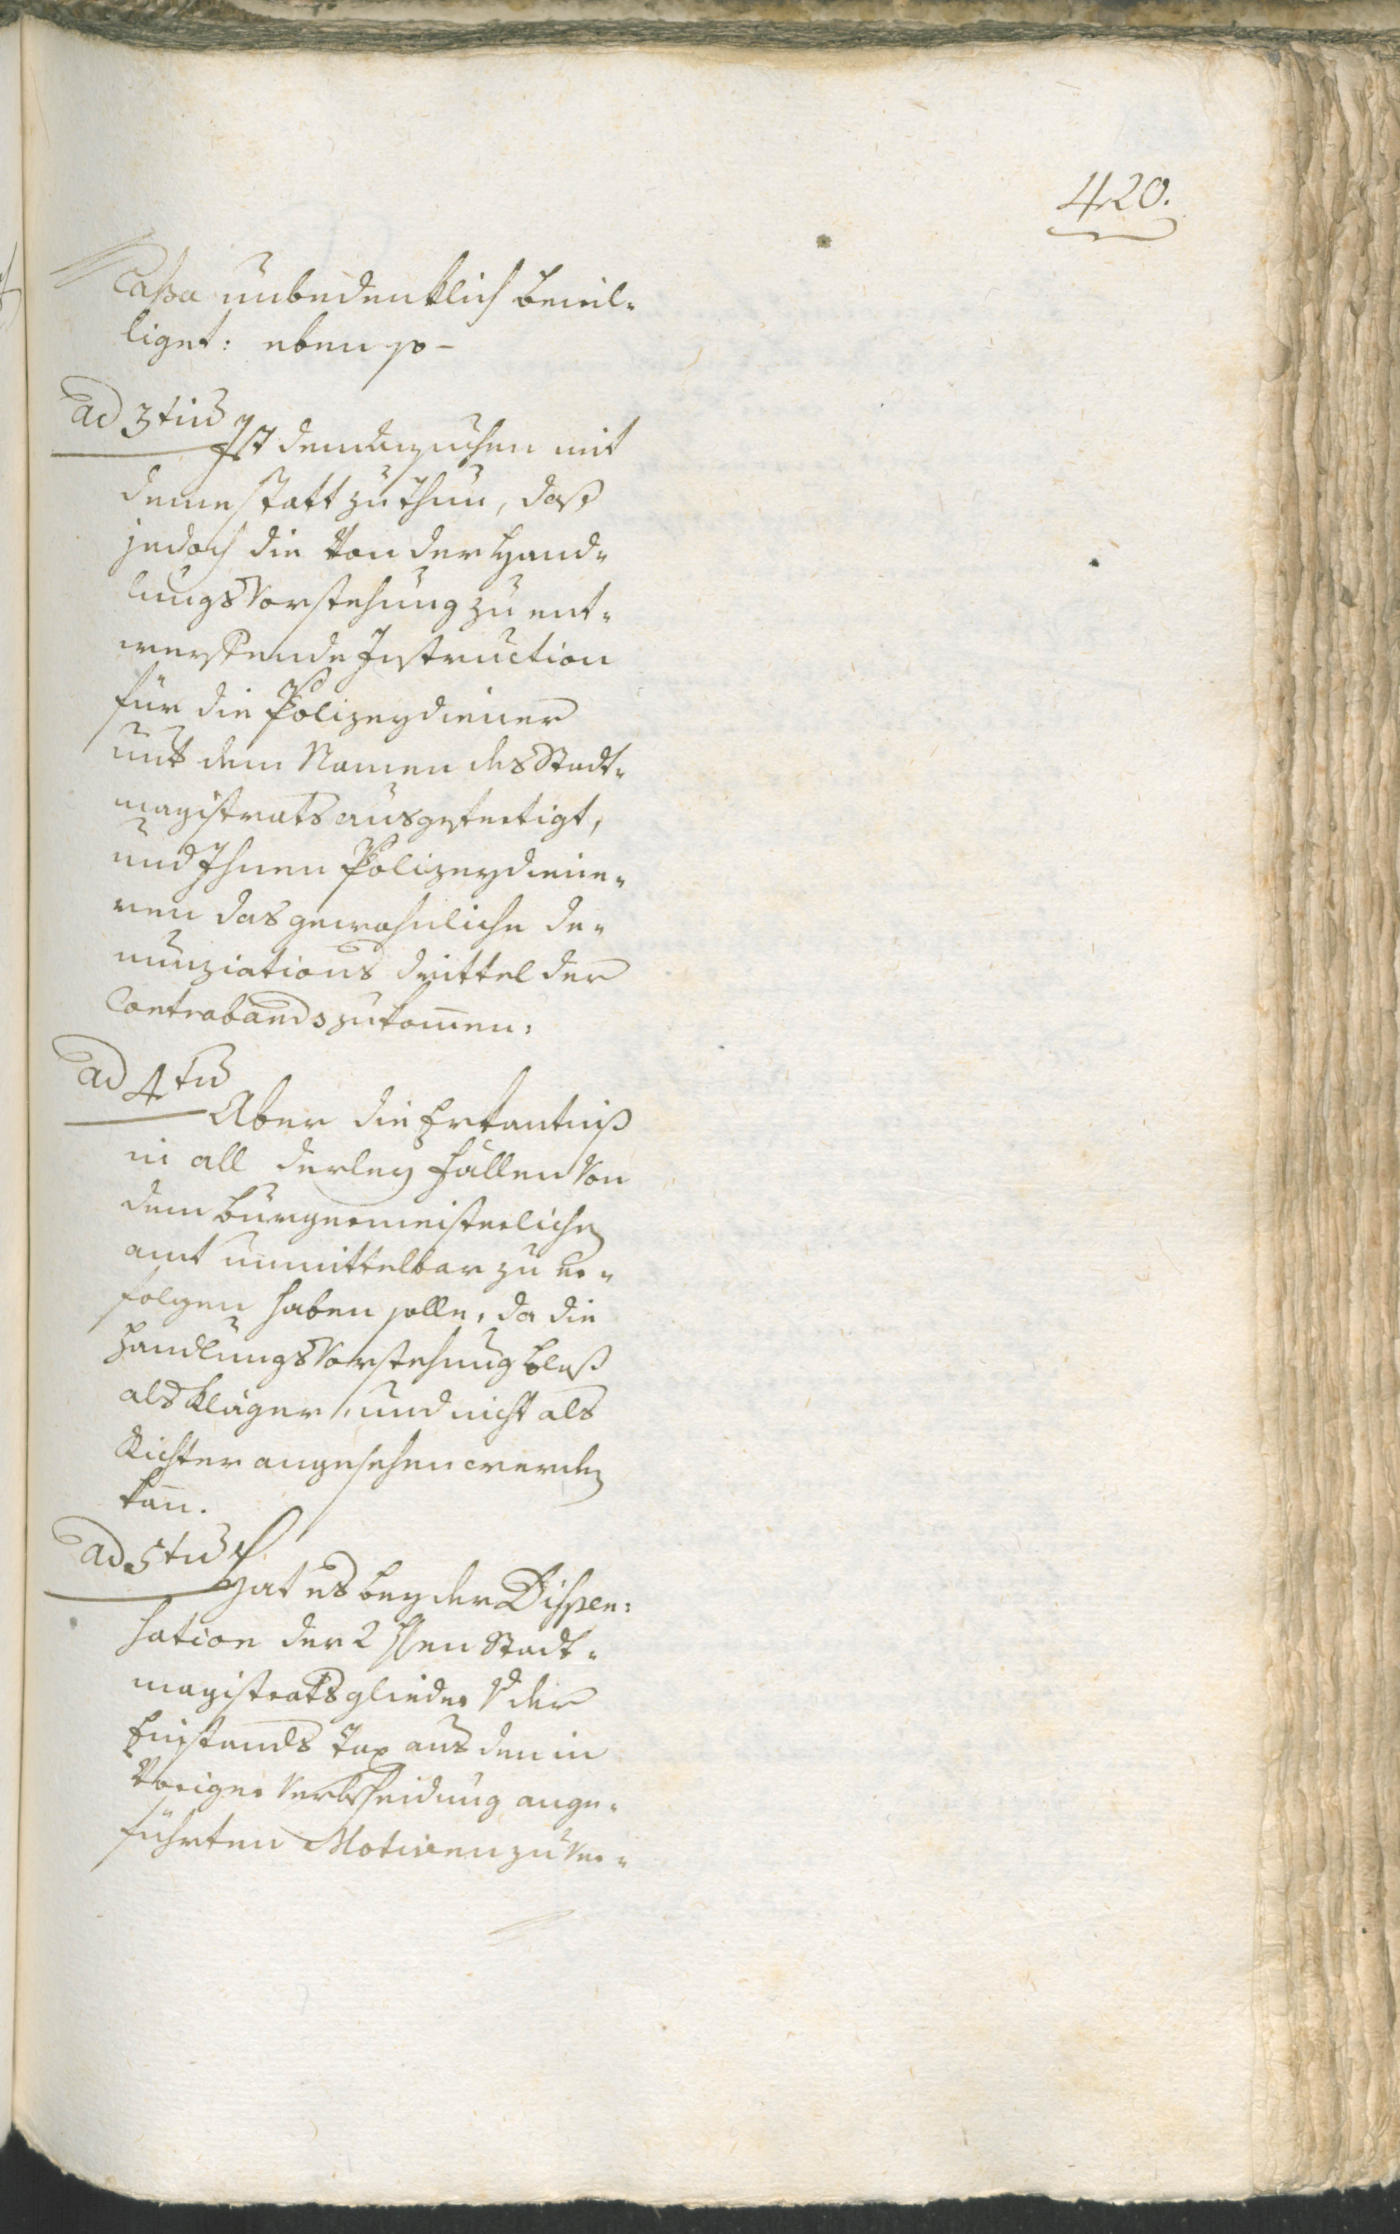 420.
Cassa unbedenklich bewil-
liget: eben so -
ad 3tiũ
Ist dem Ansuchen mit
deme statt zu thun, daß
jedoch die Von der Hand-
lungs Vorstehung zu ent-
werffende Instruction
für die Polizeydiener
mit dem Namen des Stadt-
magistrats ausgefertigt,
und Ihnen Polizeydiene-
ren das gewohnliche De-
nunziations drittel der
Contrabands zukom̃en:
ad 4tũ
Aber die Erkantniß
in all derley Fällen Von
dem Burgermeisterlichen
amt unmittelbar zu er-
folgen haben solle, da die
Handlungs Vorstehung bloß
als Kläger, und nicht als
Richter angesehen werden
kañ.
ad 5tũ
Hat es bey der Dispen-
sation der 2 Hen Stadt-
magistrats glieder der
Einstands Tax aus den in
Voriger Verbscheidung ange-
führten Motiven zu Ver-